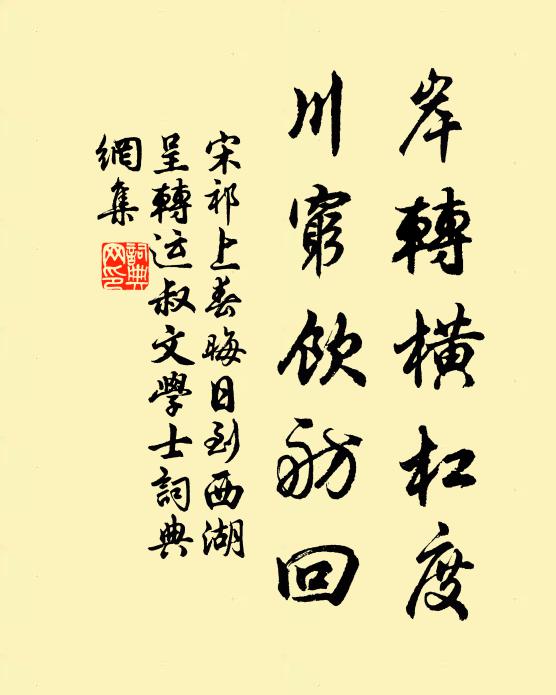 岸轉横杠度
川窮飲舫回
宋祁上春晦日到西湖
呈轉运叔文學士詞典
網集
詞典
网印